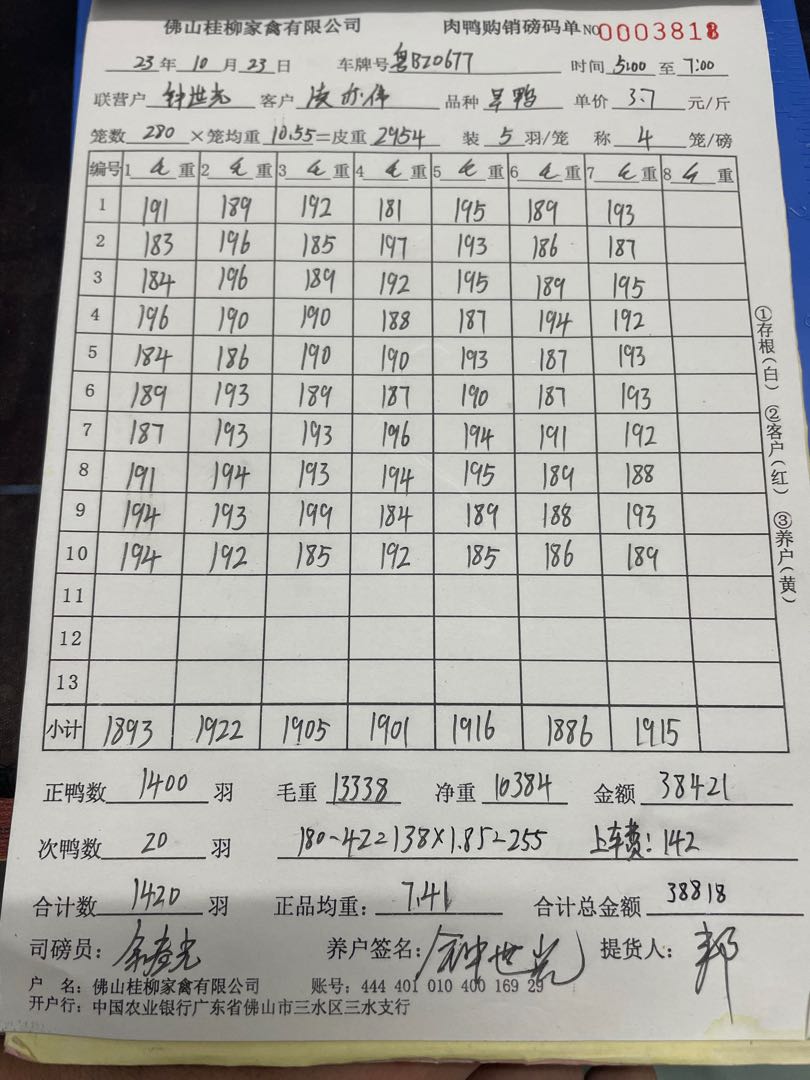 佛山桂柳家禽有限公司 肉鸭购销磅码单 NO 0003818
23 年 10 月 23 日 车牌号 粤BZ0677 时间 5:00 至 7:00
联营户 钟世光 客户 品种 旱鸭 单价 3.7 元/斤
笼数 280 ×笼均重 10.55 =皮重 2954 装 5 羽/笼 称 4 笼/磅
编号 1 毛 重 2 毛 重 3 毛 重 4 毛 重 5 毛 重 6 毛 重 7 毛 重 8 重
1 191 189 192 181 195 189 193
2 183 196 185 197 193 186 187
3 184 196 189 192 195 189 195
4 196 190 190 188 187 194 192
5 184 186 190 190 193 187 193
6 189 193 189 187 190 187 193
7 187 193 193 196 194 191 192
8 191 194 193 194 195 189 188
9 194 193 199 184 189 188 193
10 194 192 185 192 185 186 189
11
12
13
小计 1893 1922 1905 1901 1916 1886 1915
正鸭数 1400 羽 毛重 13338 净重 10384 金额 38421
次鸭数 20 羽 180-42=138×1.85=255 上车费:142
合计数 1420 羽 正品均重: 7.41 合计总金额 38818
司磅员: 养户签名: 钟世光 提货人: 邦
户 名: 佛山桂柳家禽有限公司 账号: 444 401 010 400 169 29
开户行: 中国农业银行广东省佛山市三水区三水支行
①存根(白) ②客户(红) ③养户(黄)